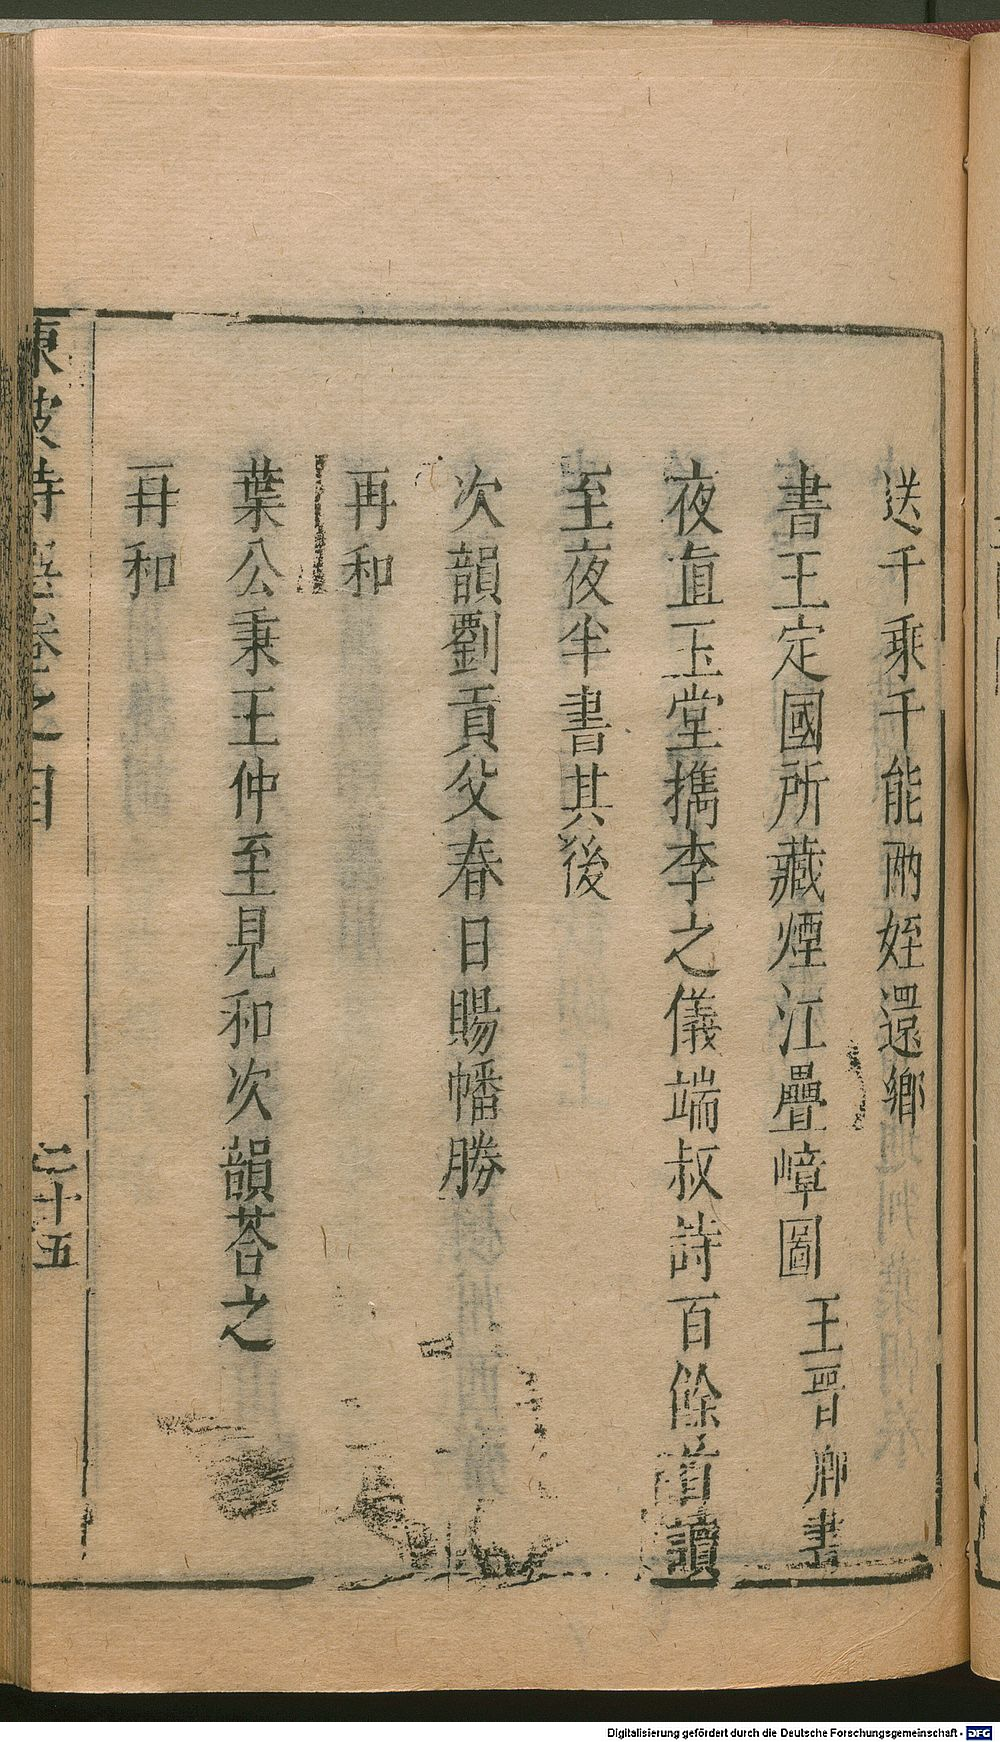 送千乘千能兩姪還鄉
書王定國所藏煙江疊嶂圖 王晉卿畫
夜直玉堂攜李之儀端叔詩百餘首讀
至夜半書其後
次韻劉貢父春日賜幡勝
再和
葉公秉王仲至見和次韻荅之
再和
東坡詩選卷之目 二十五
Digitalisierung gefördert durch die Deutsche Forschungsgemeinschaft - DFG